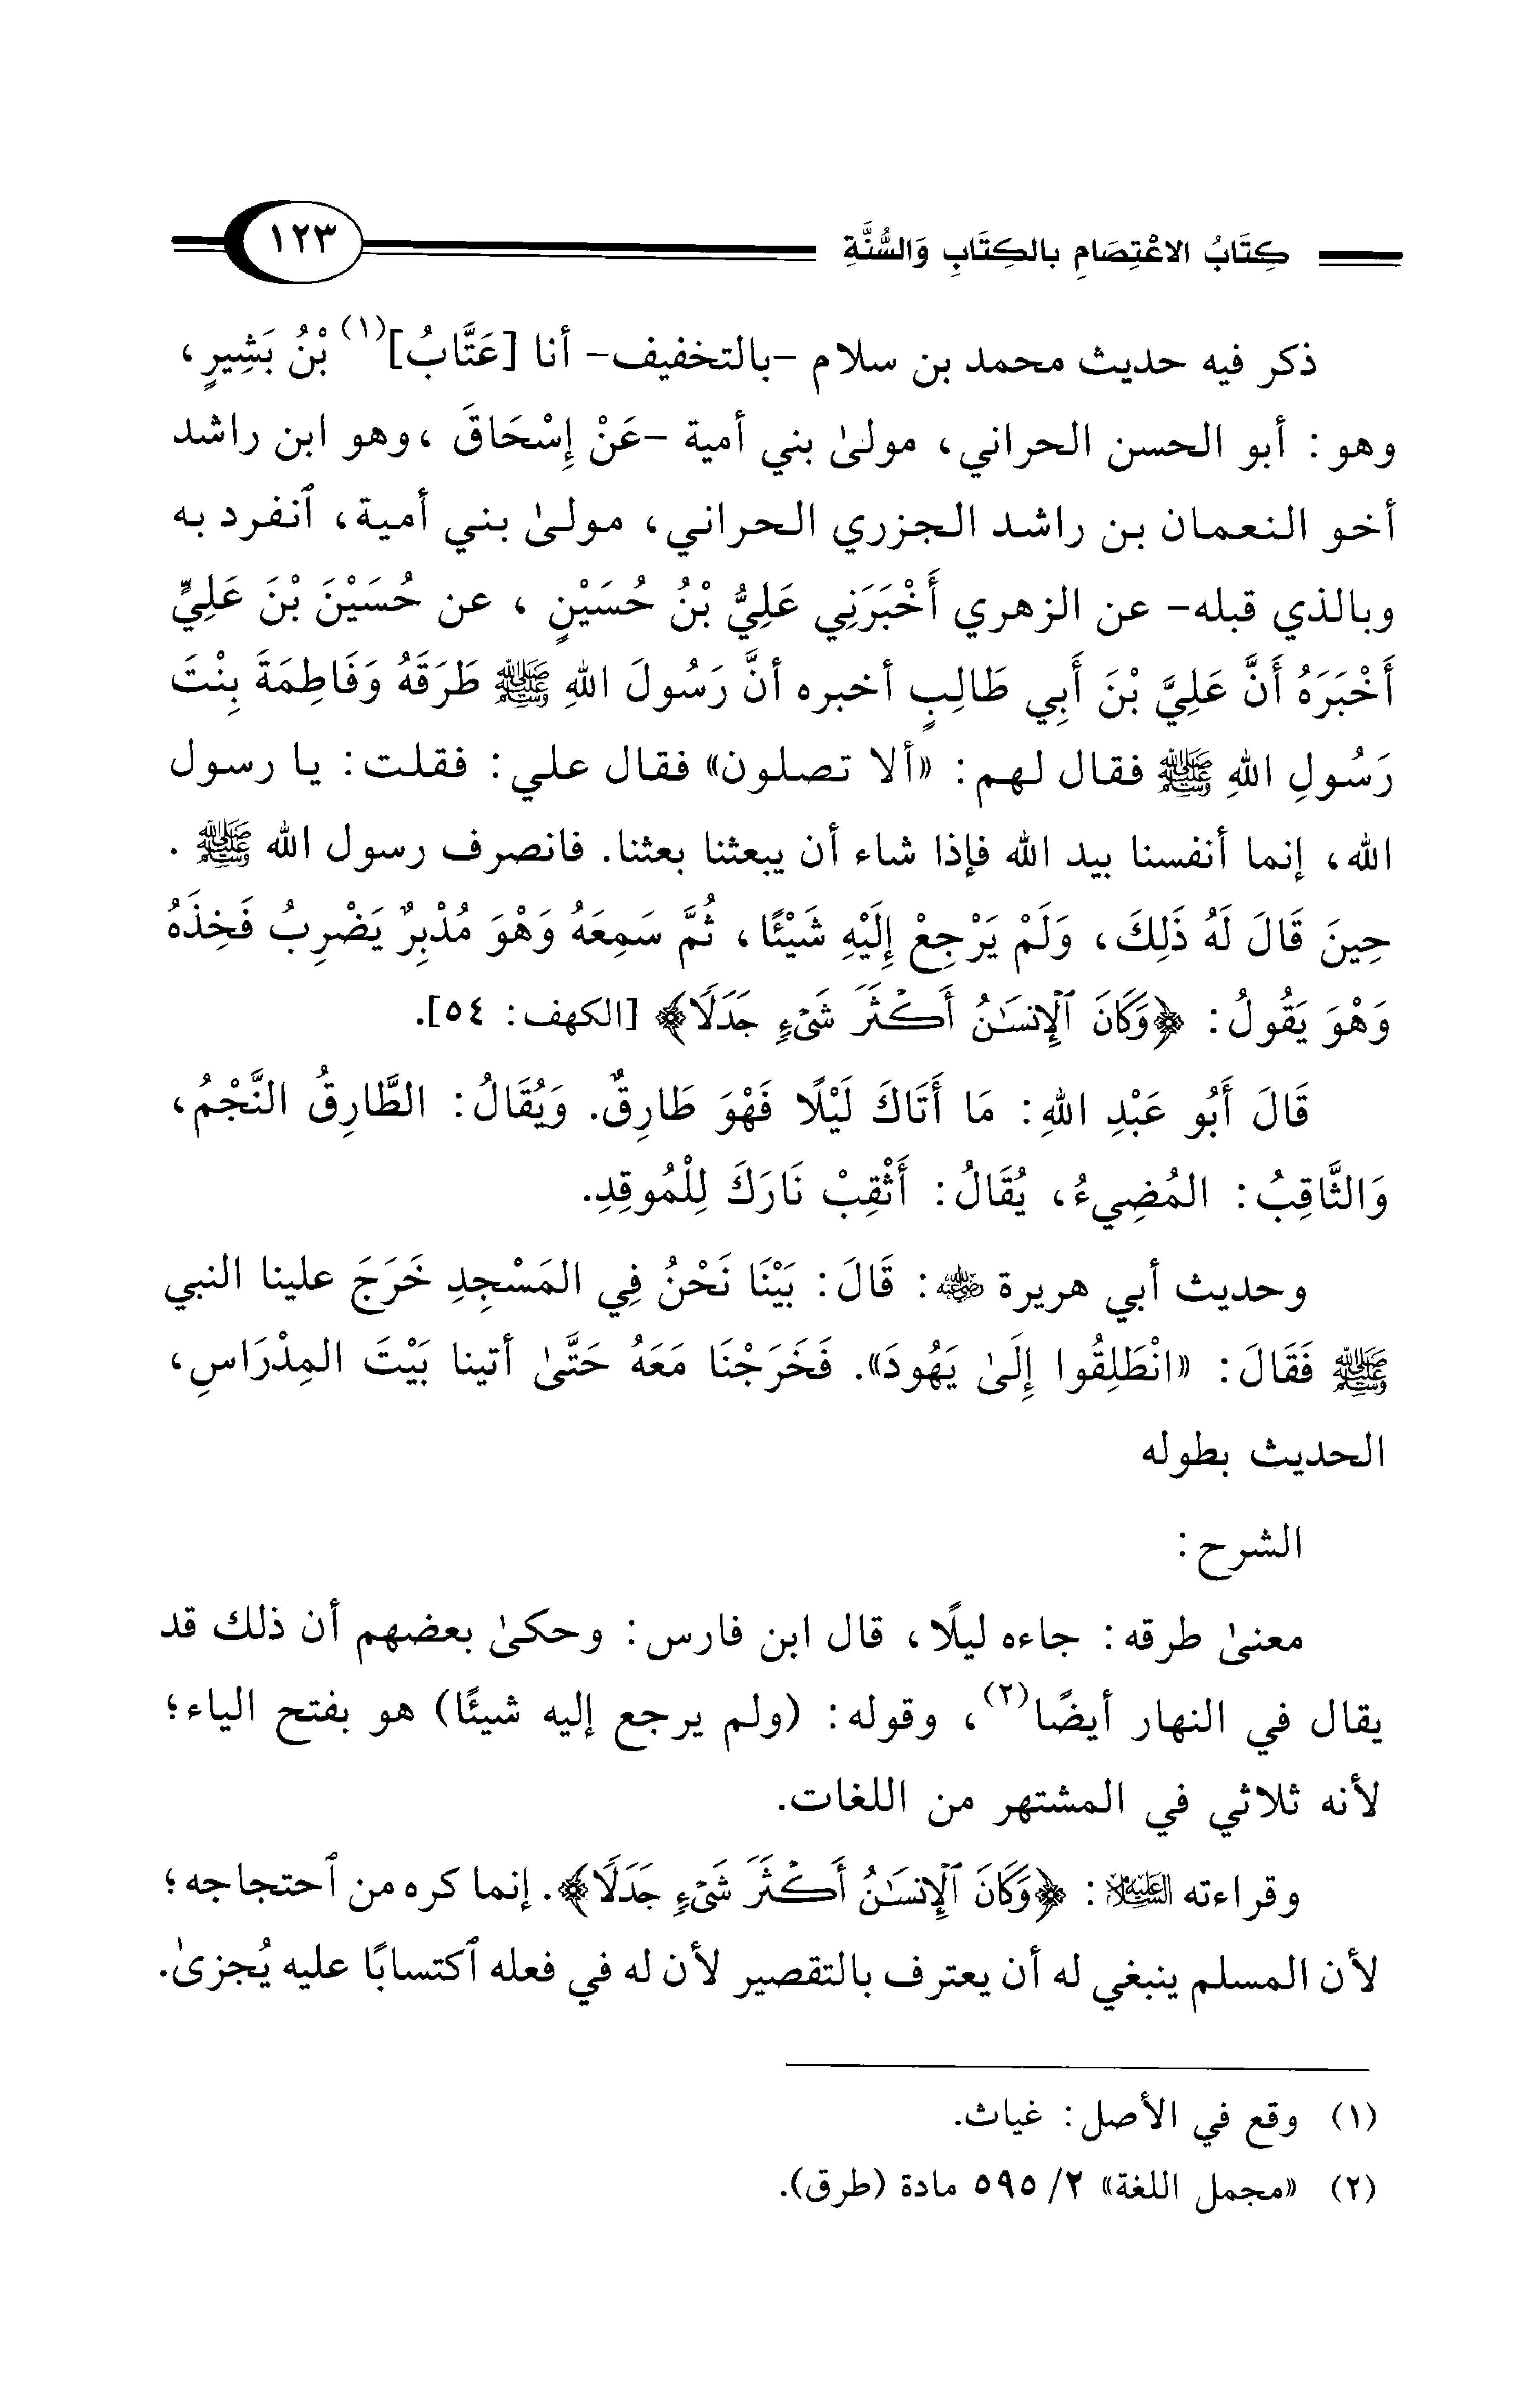 كِتَابُ الاعْتِصَامِ بالكِتَابِ وَالسُّنَّةِ ١٢٣
ذكر فيه حديث محمد بن سلام -بالتخفيف- أنا [عَتَّابُ](١) بْنُ بَشِيرٍ،
وهو : أبو الحسن الحراني، مولىٰ بني أمية -عَنْ إِسْحَاقَ ،وهو ابن راشد
أخو النعمان بن راشد الجزري الحراني، مولىٰ بني أمية، ٱنفرد به
وبالذي قبله- عن الزهري أَخْبَرَنِي عَلِيُّ بْنُ حُسَيْنٍ ، عن حُسَيْنَ بْنَ عَلِيٍّ
أَخْبَرَهُ أَنَّ عَلِيَّ بْنَ أَبِي طَالِبٍ أخبره أنَّ رَسُولَ اللهِ ﷺ طَرَقَهُ وَفَاطِمَةَ بِنْتَ
رَسُولِ اللهِ ﷺ فقال لهم: «ألا تصلون» فقال علي: فقلت: يا رسول
الله، إنما أنفسنا بيد الله فإذا شاء أن يبعثنا بعثنا. فانصرف رسول الله ﷺ .
حِينَ قَالَ لَهُ ذَلِكَ، وَلَمْ يَرْجِعْ إِلَيْهِ شَيْئًا، ثُمَّ سَمِعَهُ وَهْوَ مُدْبِرٌ يَضْرِبُ فَخِذَهُ
وَهْوَ يَقُولُ: ﴿وَكَانَ ٱلْإِنسَٰنُ أَكْثَرَ شَىْءٍ جَدَلًا﴾ [الكهف: ٥٤].
قَالَ أَبُو عَبْدِ اللهِ: مَا أَتَاكَ لَيْلًا فَهْوَ طَارِقٌ. وَيُقَالُ: الطَّارِقُ النَّجْمُ،
وَالثَّاقِبُ: المُضِيءُ، يُقَالُ: أَثْقِبْ نَارَكَ لِلْمُوقِدِ.
وحديث أبي هريرة ﵁: قَالَ: بَيْنَا نَحْنُ فِي المَسْجِدِ خَرَجَ علينا النبي
ﷺ فَقَالَ: «انْطَلِقُوا إِلَىٰ يَهُودَ». فَخَرَجْنَا مَعَهُ حَتَّىٰ أتينا بَيْتَ المِدْرَاسِ،
الحديث بطوله
الشرح:
معنىٰ طرقه: جاءه ليلًا، قال ابن فارس: وحكىٰ بعضهم أن ذلك قد
يقال في النهار أيضًا(٢)، وقوله: (ولم يرجع إليه شيئًا) هو بفتح الياء؛
لأنه ثلاثي في المشتهر من اللغات.
وقراءته ﵇: ﴿وَكَانَ ٱلْإِنسَٰنُ أَكْثَرَ شَىْءٍ جَدَلًا﴾. إنما كره من ٱحتجاجه؛
لأن المسلم ينبغي له أن يعترف بالتقصير لأن له في فعله ٱكتسابًا عليه يُجزىٰ.
(١) وقع في الأصل: غياث.
(٢) «مجمل اللغة» ٢/ ٥٩٥ مادة (طرق).